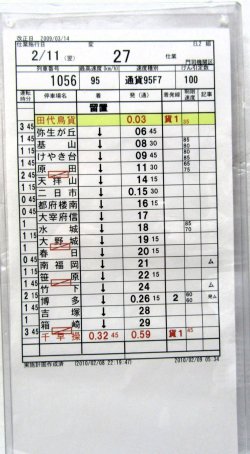 改正日 2009/03/14
仕業施行日 変 EL2 組
2/11 (翌) 27 仕業 門司機関区
列車番号 最高速度(km/h) 速度種別 けん引定数
1056 95 通貨95F7 100
運転時分 停車場名 着 発(通) 着発線 制限速度 記事
留置
田代鳥貨 0.03 貨1 35
3 45 弥生が丘 ↓ 06 45
1 45 基山 ↓ 08 30
けやき台 ↓ 09 45
原田 ↓ 11 30
天拝山 ↓ 14 15
二日市 ↓ 0.15 30
都府楼南 ↓ 16 15
大宰府信 ↓ 17
水城 ↓ 18
大野城 ↓ 19 15
春日 ↓ 20 15
南福岡 ↓ 21 ム
笹原 ↓ 22 15
竹下 ↓ 24 ム
博多 ↓ 0.26 15 2 発ム
吉塚 ↓ 28
箱崎 ↓ 29
3 45 千早操 0.32 45 0.59 貨1
実施計画作成済 (2010/02/08 22:19:47) 2010/02/09 05:34